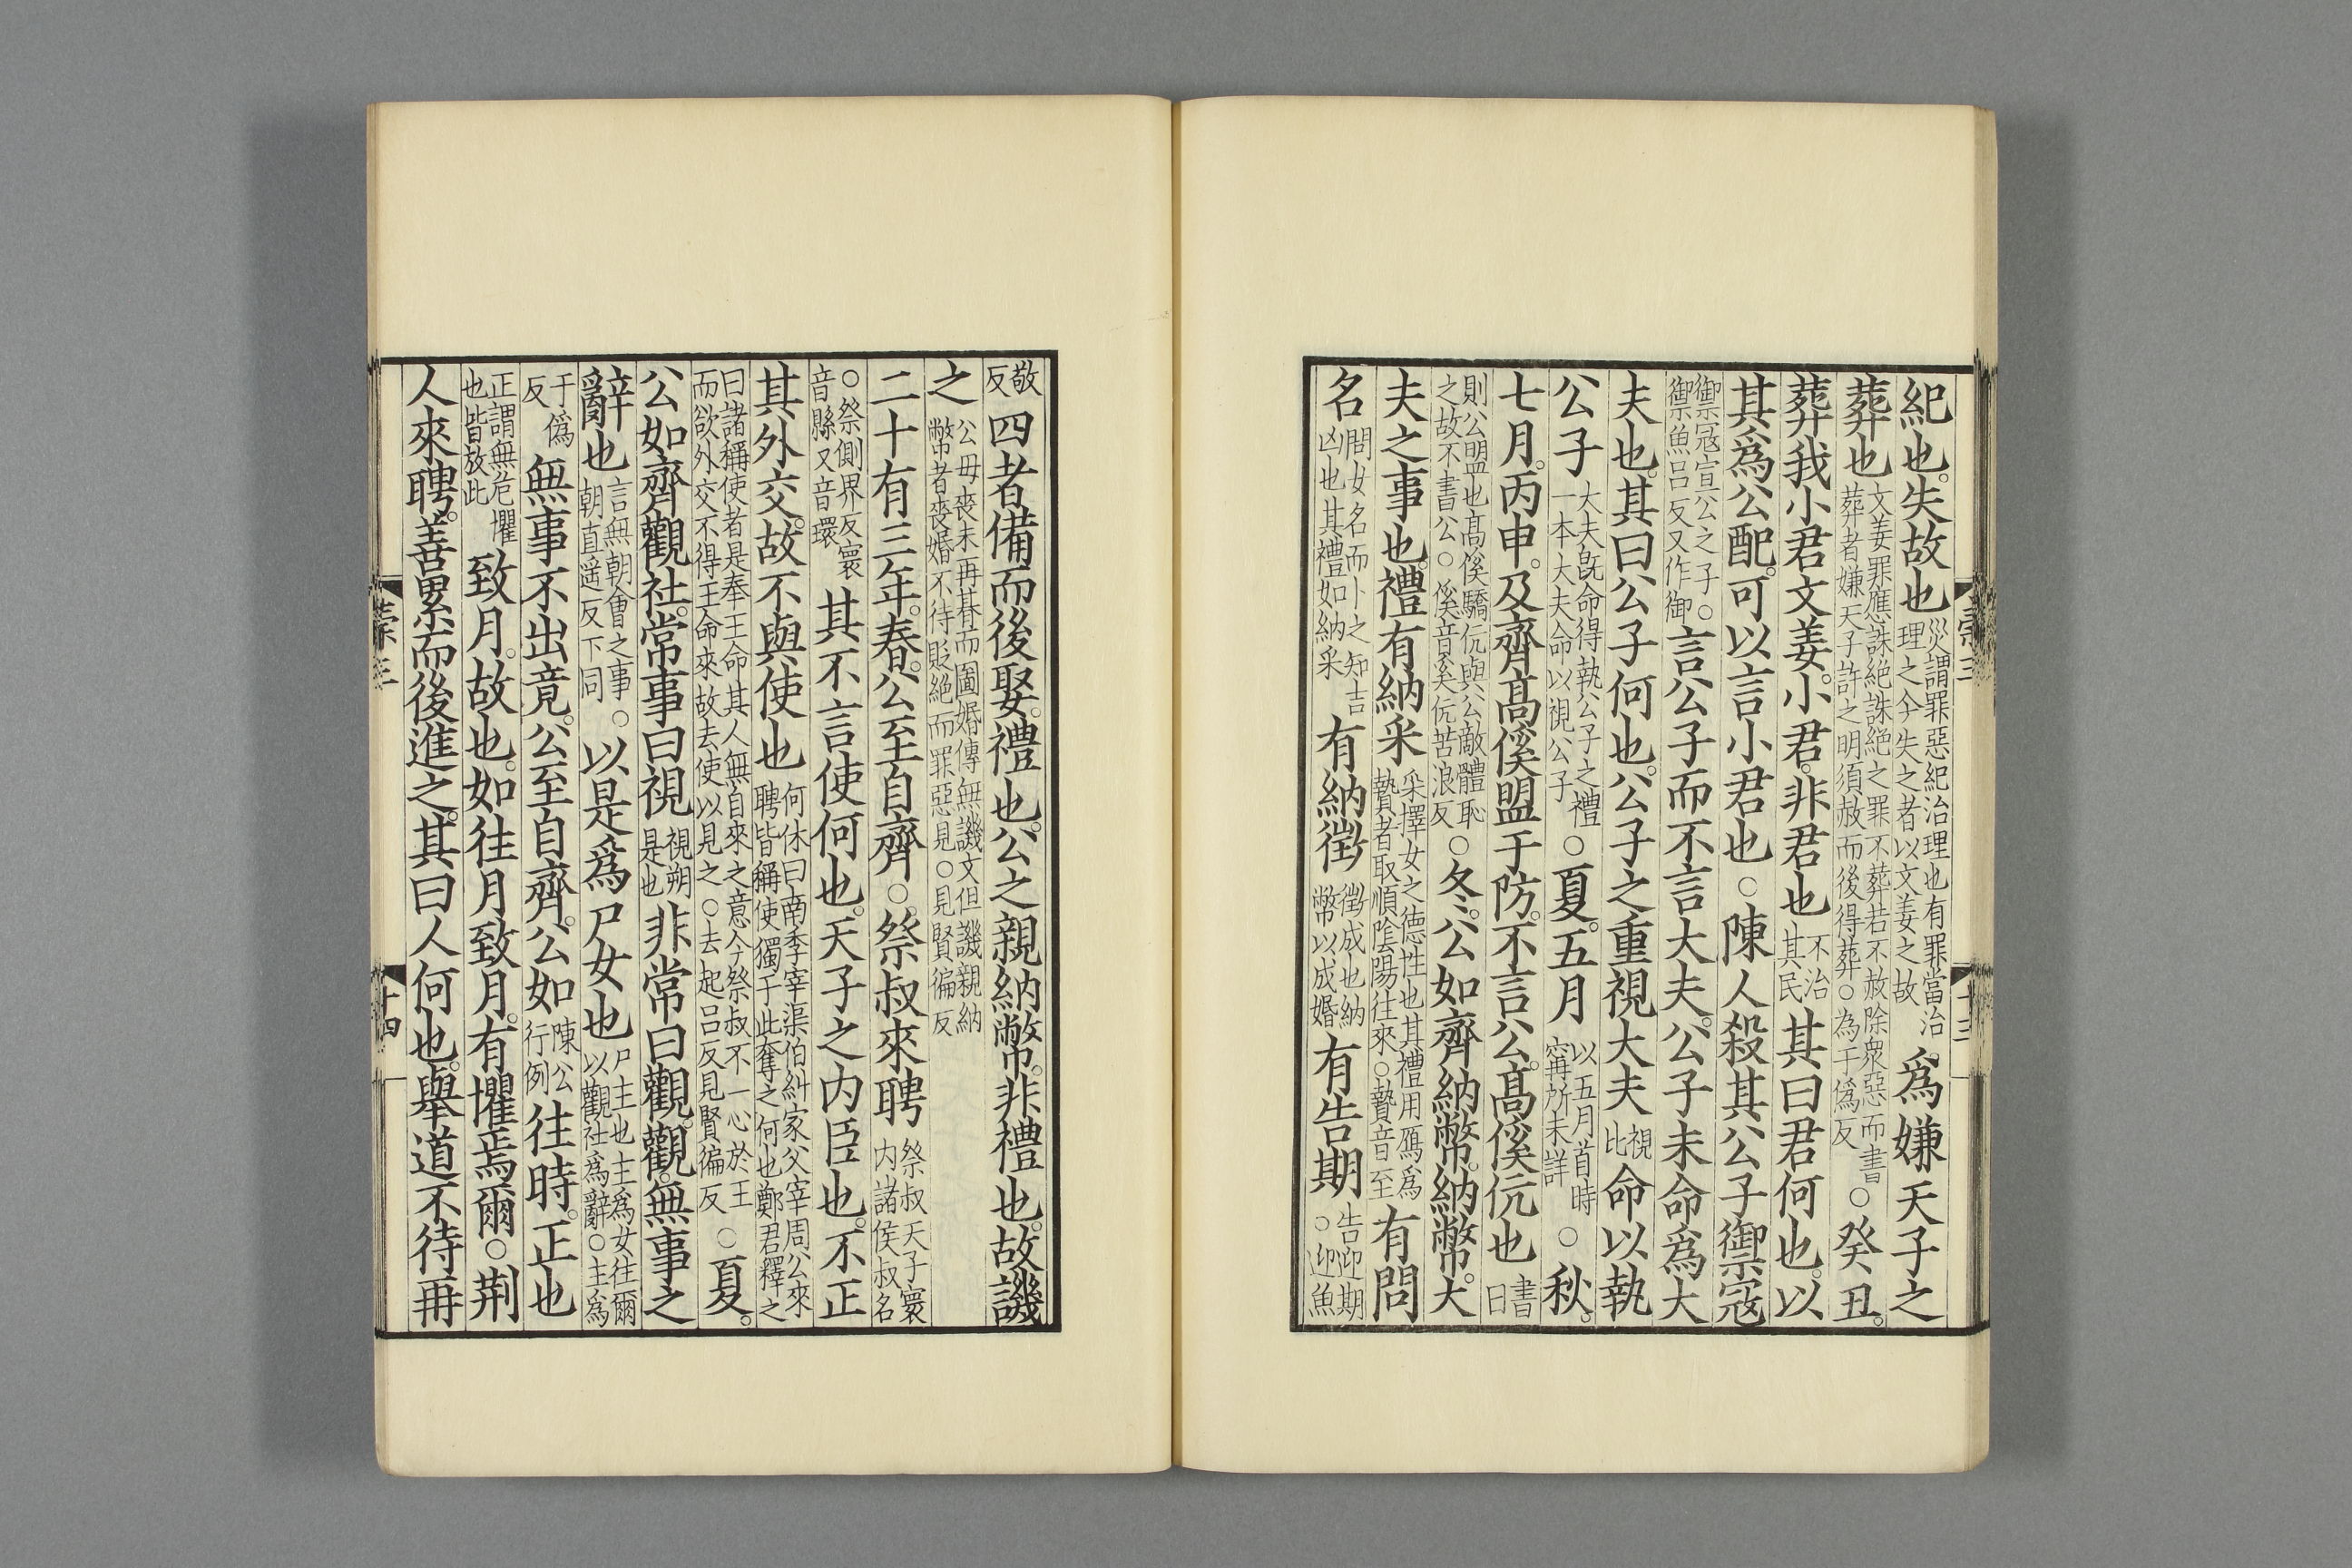 紀也失故也災謂罪惡紀治理也有罪當治理之今失之者以文姜之故爲嫌天子之
葬也文姜罪應誅絶誅絶之罪不葬若不赦除衆惡而書葬者嫌天子許之明須赦而後得葬○為于僞反○癸丑
葬我小君文姜小君非君也不治其民其曰君何也以
其爲公配可以言小君也○陳人殺其公子禦寇
禦寇宣公之子○禦魚呂反又作御言公子而不言大夫公子未命爲大
夫也其曰公子何也公子之重視大夫視比命以執
公子大夫旣命得執公子之禮一本大夫命以視公子○夏五月以五月首時甯所未詳○秋
七月丙申及齊高傒盟于防不言公高傒伉也書日
則公盟也高傒驕伉與公敵體恥之故不書公○傒音奚伉苦浪反○冬公如齊納幣納幣大
夫之事也禮有納采采擇女之德性也其禮用鴈爲贄者取順陰陽往來○贄音至有問
名問女名而卜之知吉凶也其禮如納采有納徵徵成也納幣以成婚有告期告迎期○迎魚
敬反四者備而後娶禮也公之親納幣非禮也故譏
之公母喪未再朞而圖婚傳無譏文但譏親納幣者喪婚不待貶絶而罪惡見○見賢徧反
二十有三年春公至自齊○祭叔來聘祭叔天子寰内諸侯叔名
○祭側界反寰音縣又音環其不言使何也天子之内臣也不正
其外交故不與使也何休曰南季宰渠伯糾家父宰周公來聘皆稱使獨于此奪之何也鄭君釋之
曰諸稱使者是奉王命其人無自來之意今祭叔不一心於王而欲外交不得王命來故去使以見之○去起呂反見賢徧反○夏
公如齊觀社常事曰視視朔是也非常曰觀觀無事之
辭也言無朝會之事○朝直遥反下同以是爲尸女也尸主也主爲女往爾以觀社爲辭○主爲
于僞反無事不出竟公至自齊公如陳公行例往時正也
正謂無危懼也皆放此致月故也如往月致月有懼焉爾○荆
人來聘善累而後進之其曰人何也舉道不待再
十三
十四